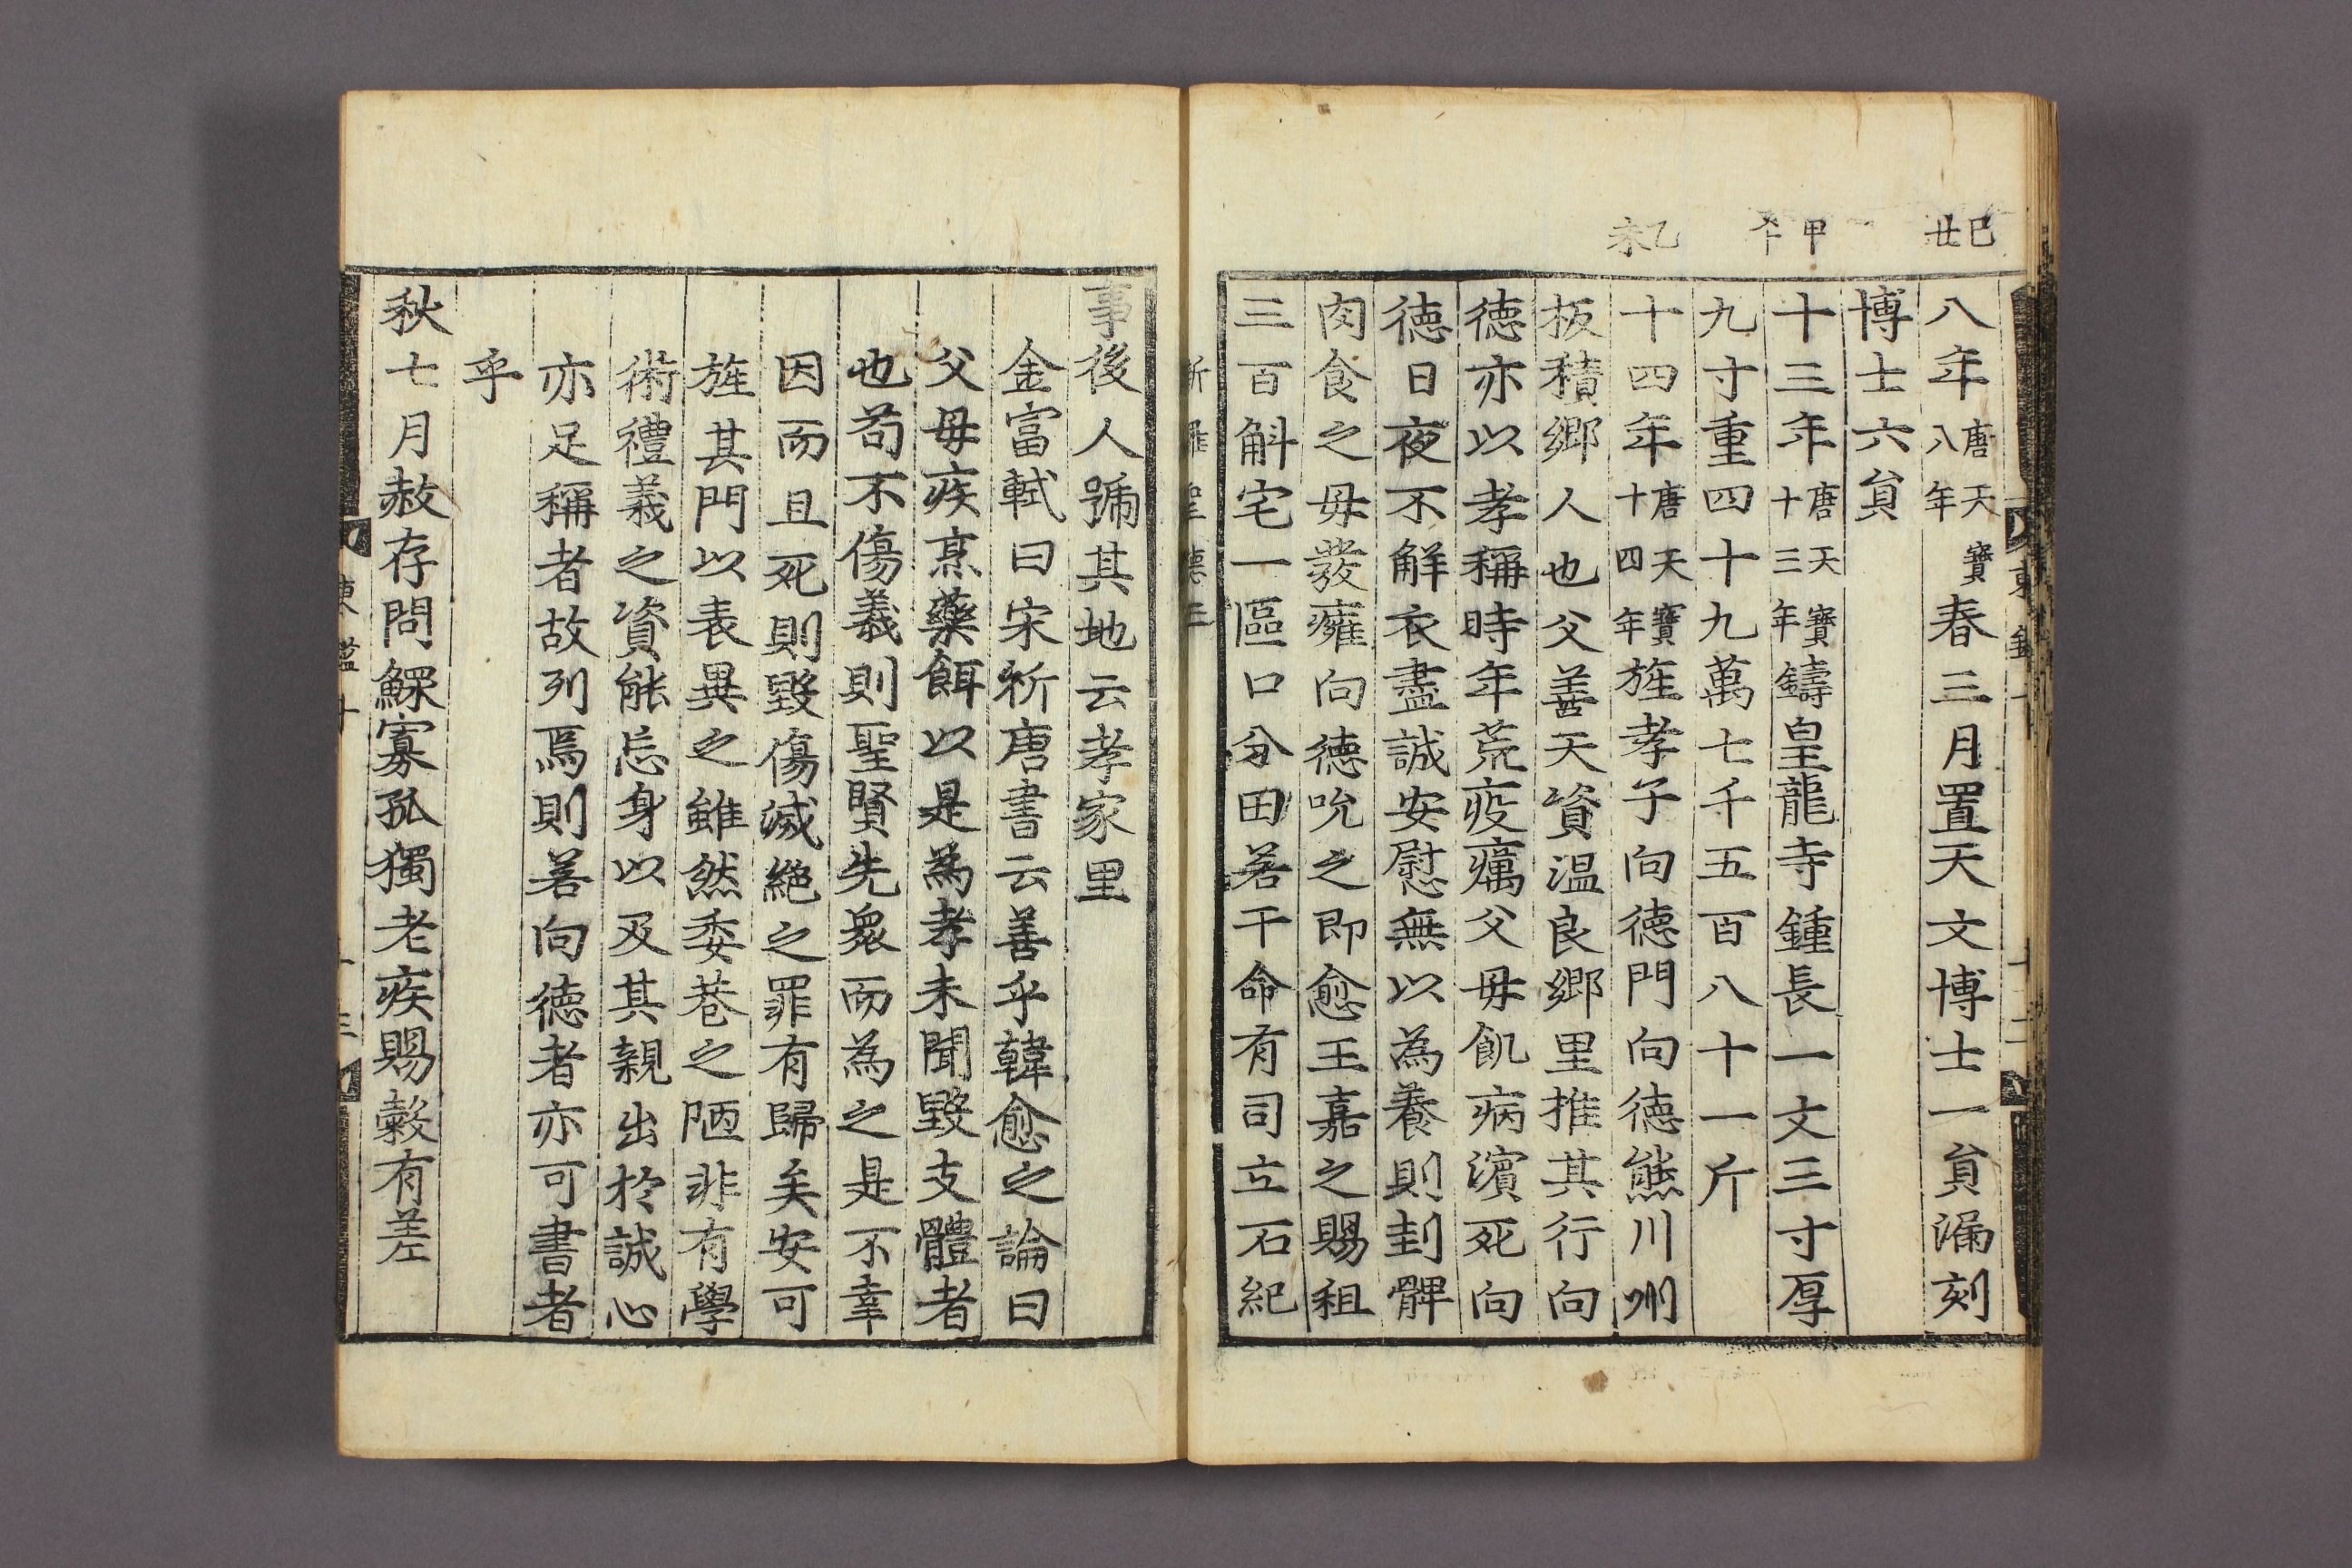 巳 丑
甲 午
乙 未
八年唐天寶八年春三月置天文博士一負漏刻
博士六負
十三年唐天寶十三年鑄皇龍寺鍾長一丈三寸厚
九寸重四十九萬七千五百八十一斤
十四年唐天寶十四年旌孝子向德門向德熊川州
板積鄉人也父善天資温良鄉里推其行向
德亦以孝稱時年荒疫癘父母飢病濱死向
德日夜不解衣盡誠安慰無以為養則刲髀
肉食之母發癰向德吮之即愈王嘉之賜租
三百斛宅一區口分田若干命有司立石紀
新羅 王
事後人號其地云孝家里
金富軾曰宋祈唐書云善乎韓愈之論曰
父母疾烹藥餌以是為孝未聞毀支體者
也苟不傷義則聖賢先衆而為之是不幸
因而且死則毀傷滅絕之罪有歸矣安可
旌其門以表異之雖然委巷之陋非有學
術禮義之資能忘身以及其親出於誠心
亦足稱者故列焉則若向德者亦可書者
乎
秋七月赦存問鰥寡孤獨老疾賜穀有差
東鑑十 十三